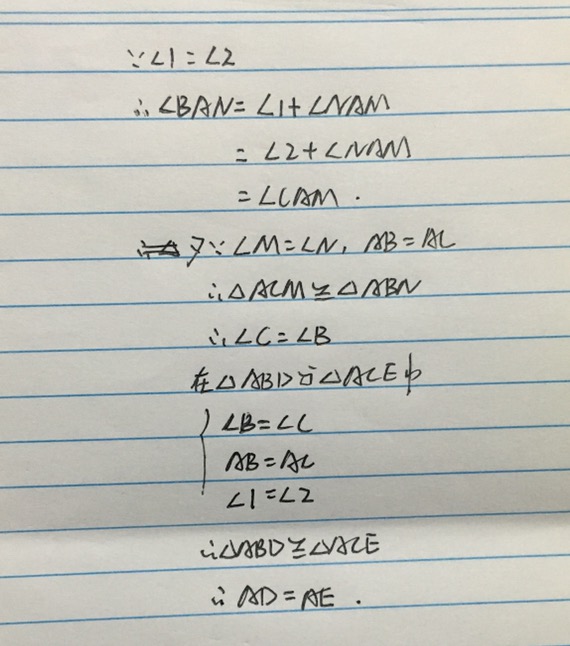 ∵∠1=∠2
∴∠BAN=∠1+∠NAM
=∠2+∠NAM
=∠CAM.
又∵∠M=∠N, AB=AC
∴△ACM≌△ABN
∴∠C=∠B
在△ABD与△ACE中
∠B=∠C
AB=AC
∠1=∠2
∴△ABD≌△ACE
∴AD=AE.